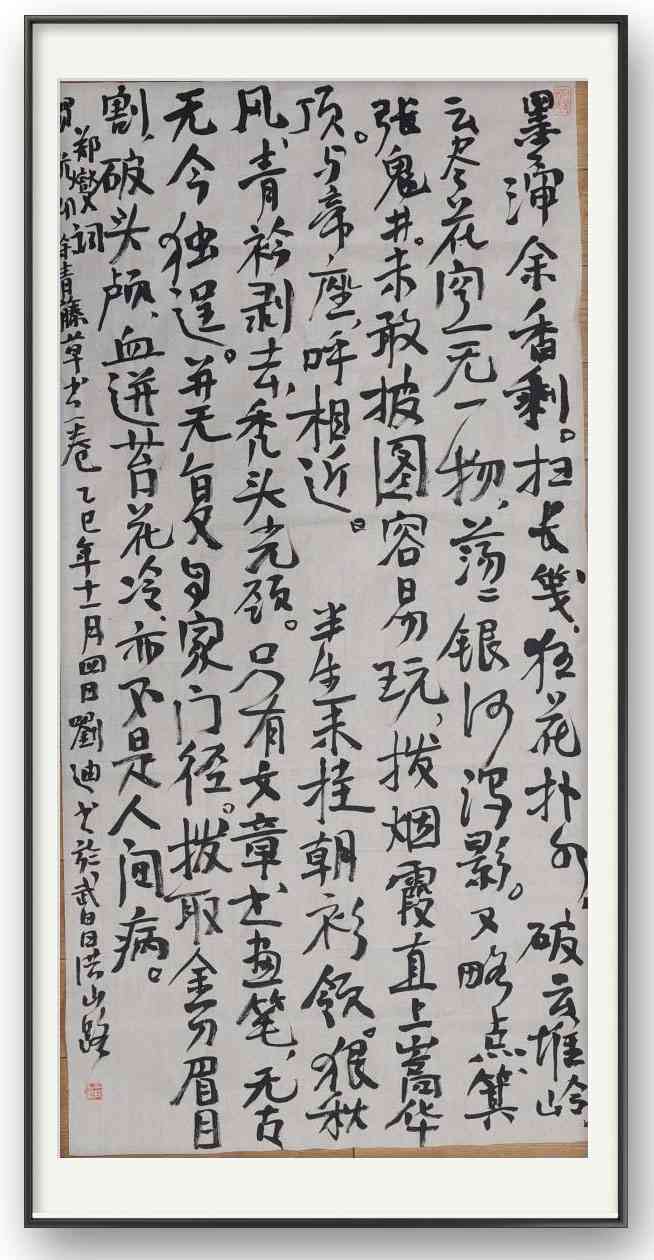 墨渖余香剩。扫长笺、狂花扑水 破云堆岭
云尽花空无一物,荡〻银河泻影。又略点、箕
张鬼井。未敢披图容易玩,拨烟霞直上嵩华
顶。与帝座,呼相近。 半生未挂朝衫领。狠秋
风、青衿剥去,秃头光颈。只有文章书画笔,无古
无今独逞。并无复自家门径。拔取金刀眉目
割、破头颅、血迸苔花冷、亦不是人间病。
郑燮词
徐青藤草书一卷 乙巳年十一月四日劉迪书於武昌洪山路